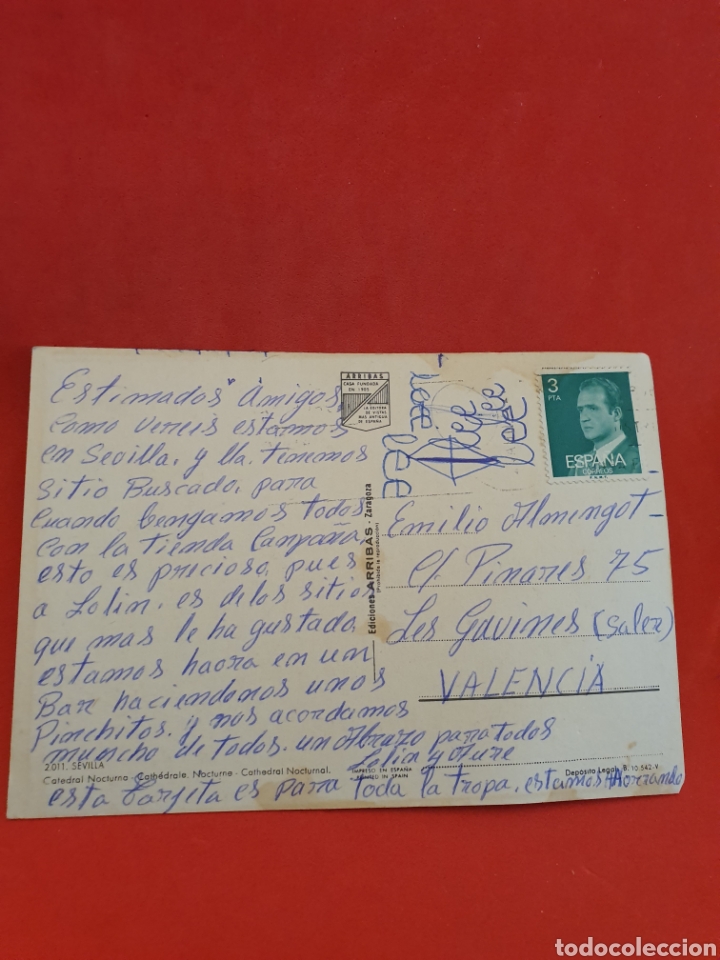 Estimados Amigos
como vereis estamos
en Sevilla, y lla tenemos
sitio Buscado, para
cuando bengamos todos
con la tienda Canpaña,
esto es precioso, pues
a Lolin. es delos sitios
que mas le ha gustado
estamos haora en un
Bar haciendonos unos
Pinchitos. y nos acordamos
muncho de todos. un Abrazo parra todos
Lolin y
esta tarjeta es parra toda la tropa. estamos Ahorrando
2.011. SEVILLA
Catedral Nocturna - Cathédrale. Nocturne - Cathedral Nocturnal.
IMPRESO EN ESPAÑA
PRINTED IN SPAIN
Depósito Legal: B. 10.562-V
ARRIBAS
CASA FUNDADA
EN 1905
LA EDITORA
DE VISTAS
MAS ANTIGUA
DE ESPAÑA
Ediciones ARRIBAS - Zaragoza
(Prohibida la reproducción)
3
PTA
ESPAÑA
CORREOS
Emilio Almengot
C/ Pinares 75
Les Gavines (Saler)
VALENCIA
todocoleccion